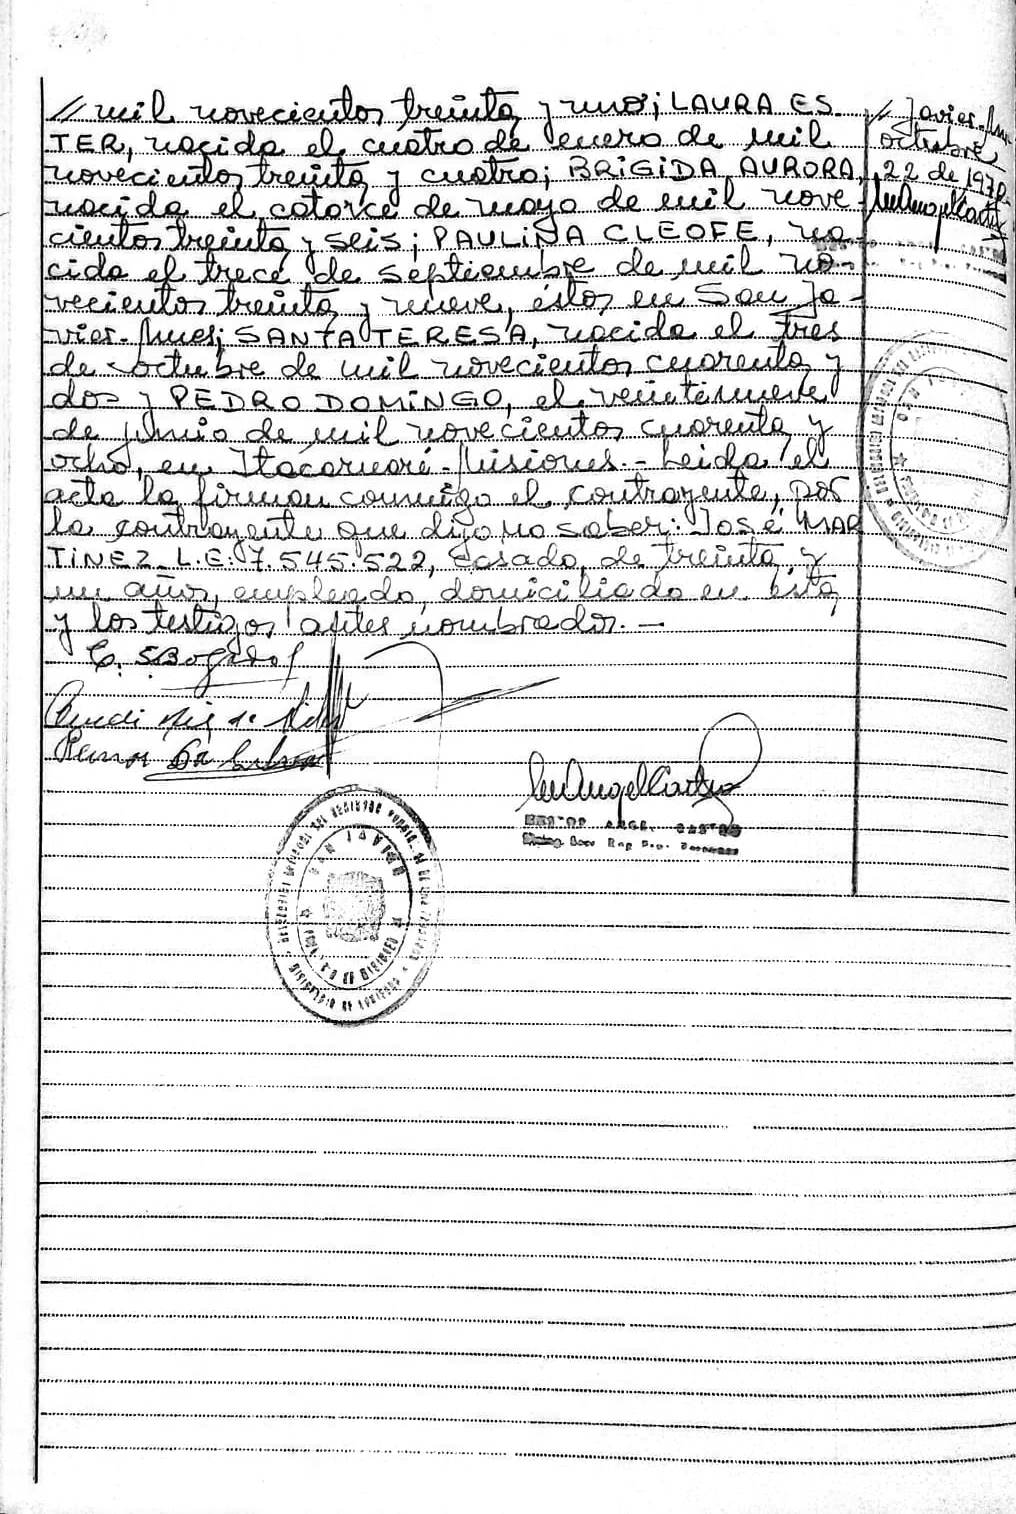 // mil novecientos treinta y uno; LAURA ES-
TER, nacida el cuatro de enero de mil
novecientos treinta y cuatro; BRIGIDA AURORA,
nacida el catorce de mayo de mil nove-
cientos treinta y seis; PAULINA CLEOFE, na-
cida el trece de septiembre de mil no-
vecientos treinta y nueve, éstos en San Ja-
vier-Mnes; SANTA TERESA, nacida el tres
de octubre de mil novecientos cuarenta y
dos y PEDRO DOMINGO, el veintinueve
de junio de mil novecientos cuarenta y
ocho, en Itacaruaré-Misiones.- Leida el
acta la firman conmigo el contrayente, por
la contrayente que dijo no saber: José MAR
TINEZ L.E. 7.545.522, casado, de treinta y
un años, empleado, domiciliado en ésta,
y los testigos antes nombrados.-
// Javier-Mn
octubre
22 de 1970-
C. S. Bogado
Ramon Da Silva
CASTRO
SAN JAVIER